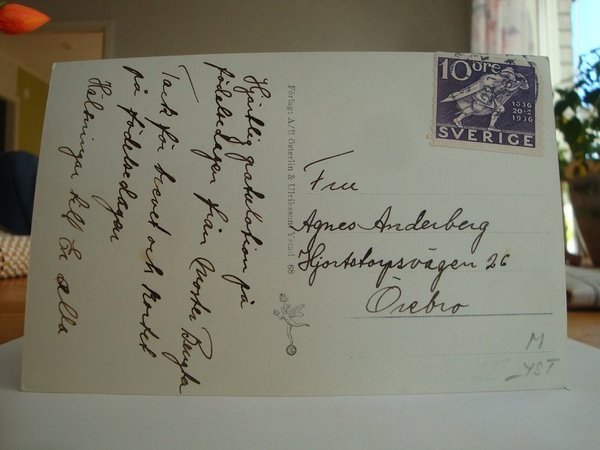 Hjärtlig gratulation på
födelsedagen från Moster Bengta
Tack för brevet och kortet
på födelsedagen
Hälsningar till Er alla
Förlag: A/B Österlin & Ulriksson, Ystad. 68
10 öre
1636
20-2
1936
SVERIGE
Fru
Agnes Anderberg
Hjortstorpsvägen 26
Örebro
M
YST